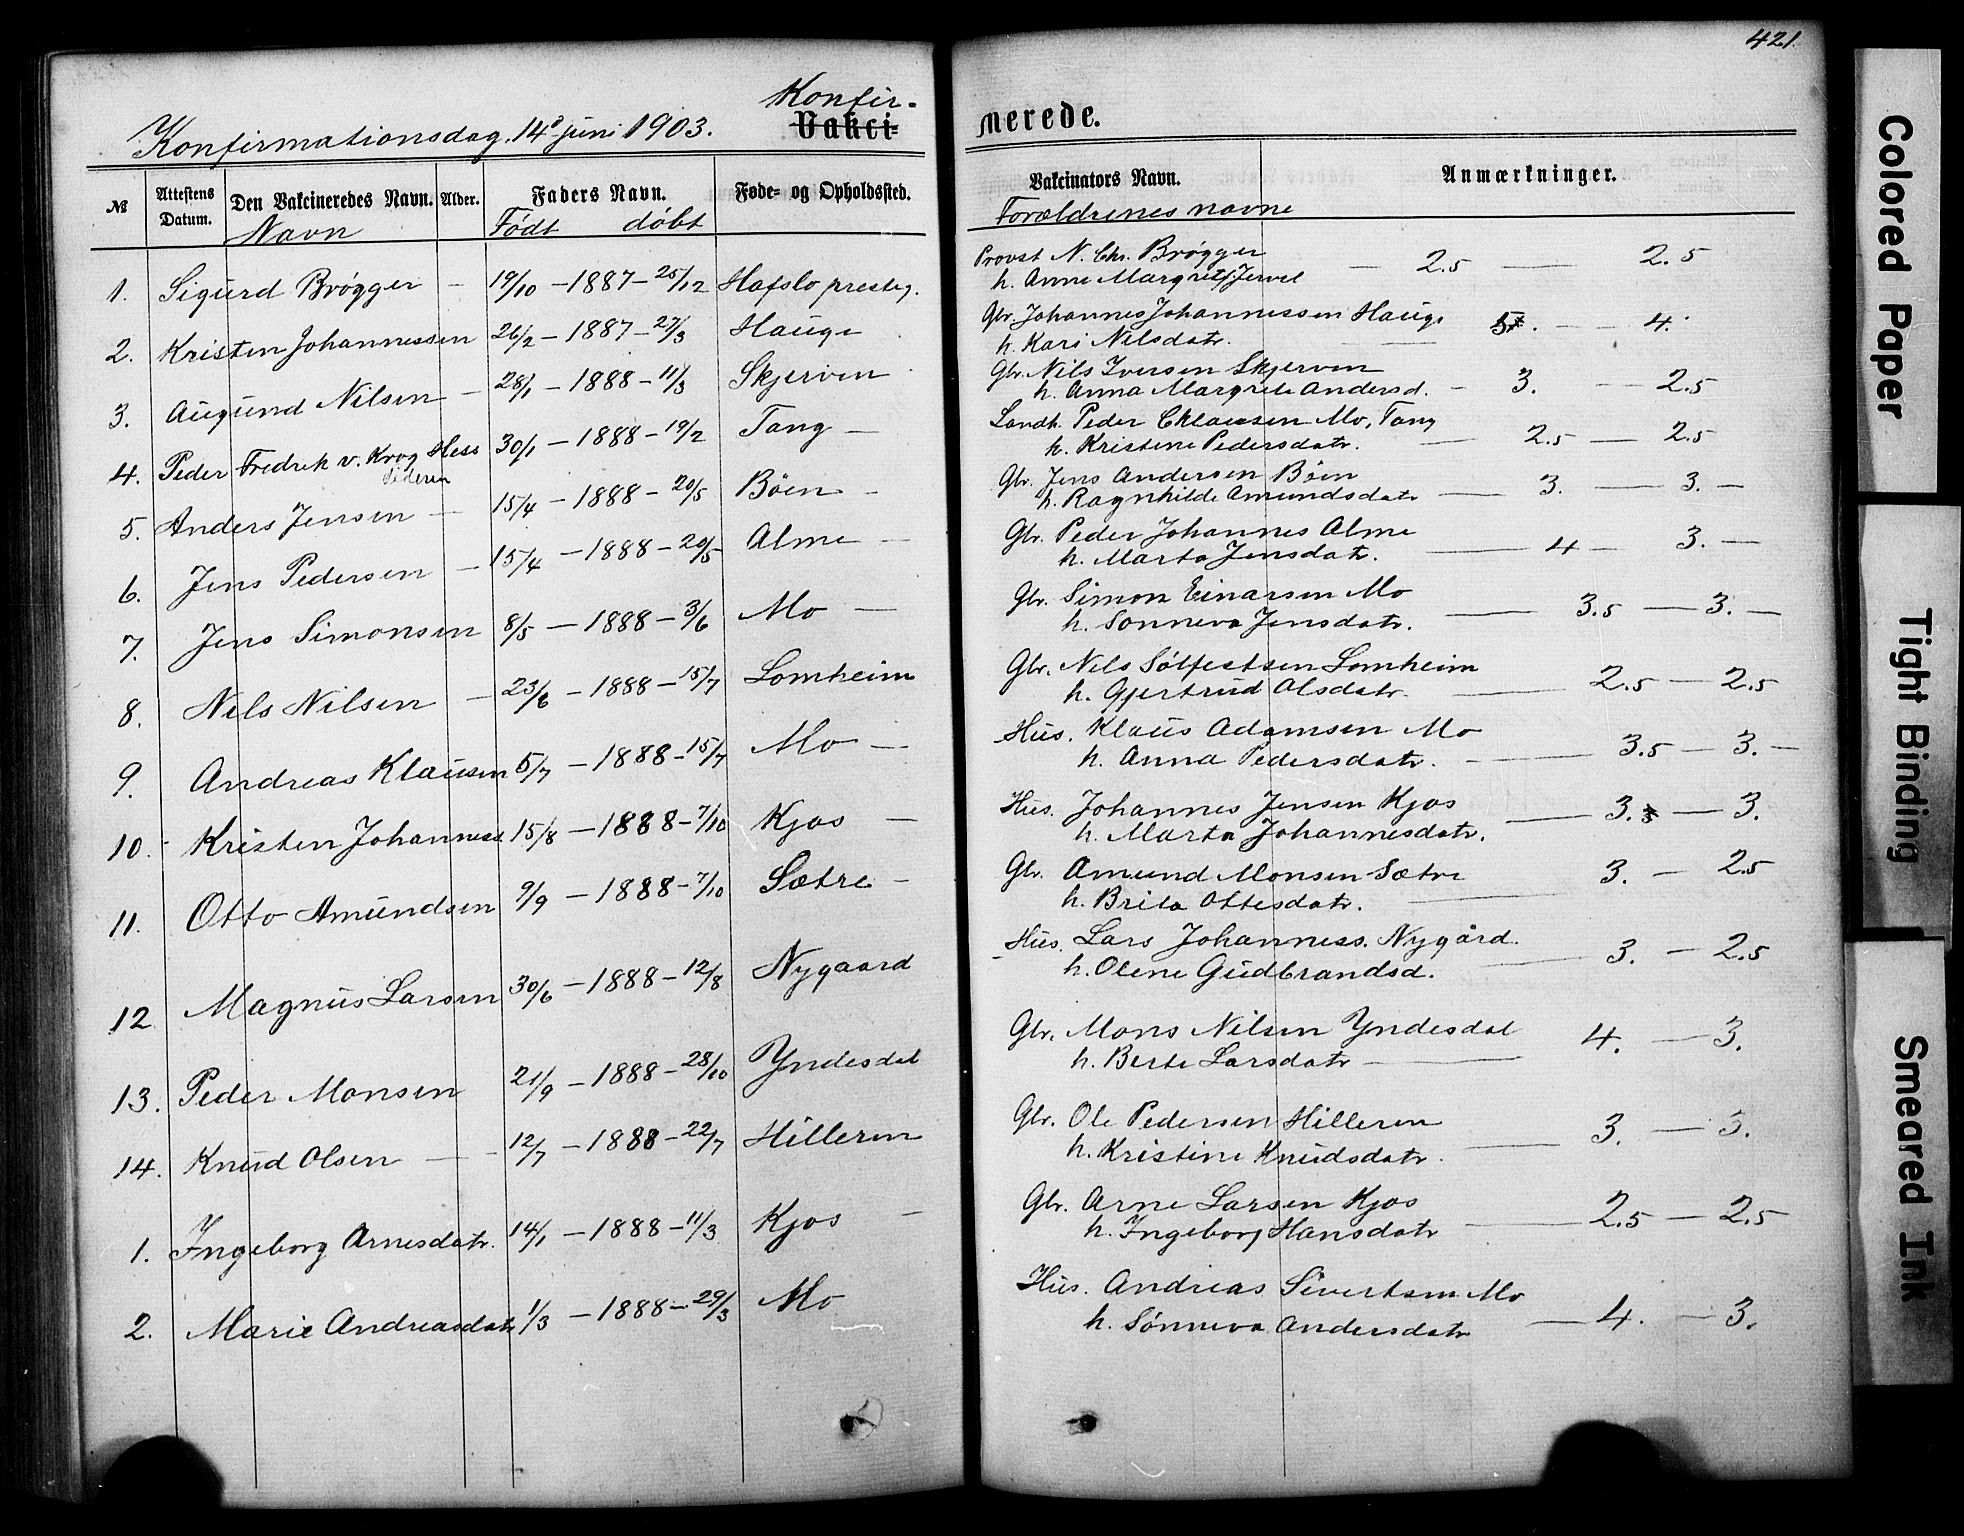 421.
Konfir-
Konfirmationsdag. 14de juni 1903. Vakci= merede.
№ Attestens Datum. Den Vakcineredes Navn. Alder. Faders Navn. Føde= og Opholdssted. Vakcinators Navn. Anmærkninger.
Navn Födt döbt Forældrenes navne
1. Sigurd Brøgger – 19/10 – 1887 – 25/12 Hafslo presteg. Provst N. Chr. Brøgger — 2.5 — 2.5
h. Anne Margrete f. Jervel
2. Kristen Johannessen 26/2 – 1887 – 27/3 Hauge Gbr. Johannes Johannessen Hauge — 4.
h. Kari Nilsdatr.
3. Augund Nilsen – 28/1 – 1888 – 11/3 Skjerven Gbr. Nils Iversen Skjerven
h. Anna Margrete Andersd. – 3. — 2.5
4. Peder Fredrik v. Krog Hess 30/1 – 1888 – 19/2 Tang – Landh. Peder Chlausen Mo, Tang
Pedersen h. Kristine Pedersdatr. — 2.5 — 2.5
5. Anders Jensen – 15/4 – 1888 – 20/5 Böen – Gbr. Jens Andersen Böen
h. Ragnhilde Amundsdatr — 3. — 3. –
6. Jens Pedersen – 15/4 – 1888 – 20/5 Alme – Gbr. Peder Johannes Alme
h. Marta Jensdatr. — 4 — 3. –
7. Jens Simonsen 8/5 – 1888 – 3/6 Mo – Gbr. Simon Einarsen Mo
h. Sonneva Jensdatr. — 3.5 — 3. –
8. Nils Nilsen – 23/6 – 1888 – 15/7 Lomheim Gbr. Nils Sölfestsen Lomheim
h. Gjertrud Olsdatr. — 2.5 — 2.5
9. Andreas Klausen 5/7 – 1888 – 15/7 Mo – Hus. Klaus Adamsen Mo
h. Anna Pedersdatr. — 3.5 — 3. –
10. Kristen Johanness. 15/8 – 1888 – 7/10 Kjos – Hus. Johannes Jensen Kjos
h. Marta Johannesdatr. — 3. — 3.
11. Otto Amundsen 9/9 – 1888 – 7/10 Sætre – Gbr. Amund Monsen Sætre
h. Brita Ottesdatr. — 3. — 2.5
12. Magnus Larsen 30/6 – 1888 – 12/8 Nygaard Hus. Lars Johanness. Nygård.
h. Olene Gudbrandsd. — 3. — 2.5
13. Peder Monsen 21/9 – 1888 – 28/10 Yndesdal Gbr. Mons Nilsen Yndesdal
h. Berte Larsdatr — 4. — 3.
14. Knud Olsen – 12/7 – 1888 – 22/7 Hilleren Gbr. Ole Pedersen Hilleren
h. Kristine Knudsdatr. — 3. — 3.
1. Ingeborg Arnesdatr. 14/1 – 1888 – 11/3 Kjos – Gbr. Arne Larsen Kjos
h. Ingeborg Hansdatr — 2.5 — 2.5
2. Marie Andreasdatr 1/3 – 1888 – 29/3 Mo Hus. Andreas Sivertsen Mo
h. Sönneva Andersdatr — 4. — 3.
Colored Paper
Tight Binding
Smeared Ink